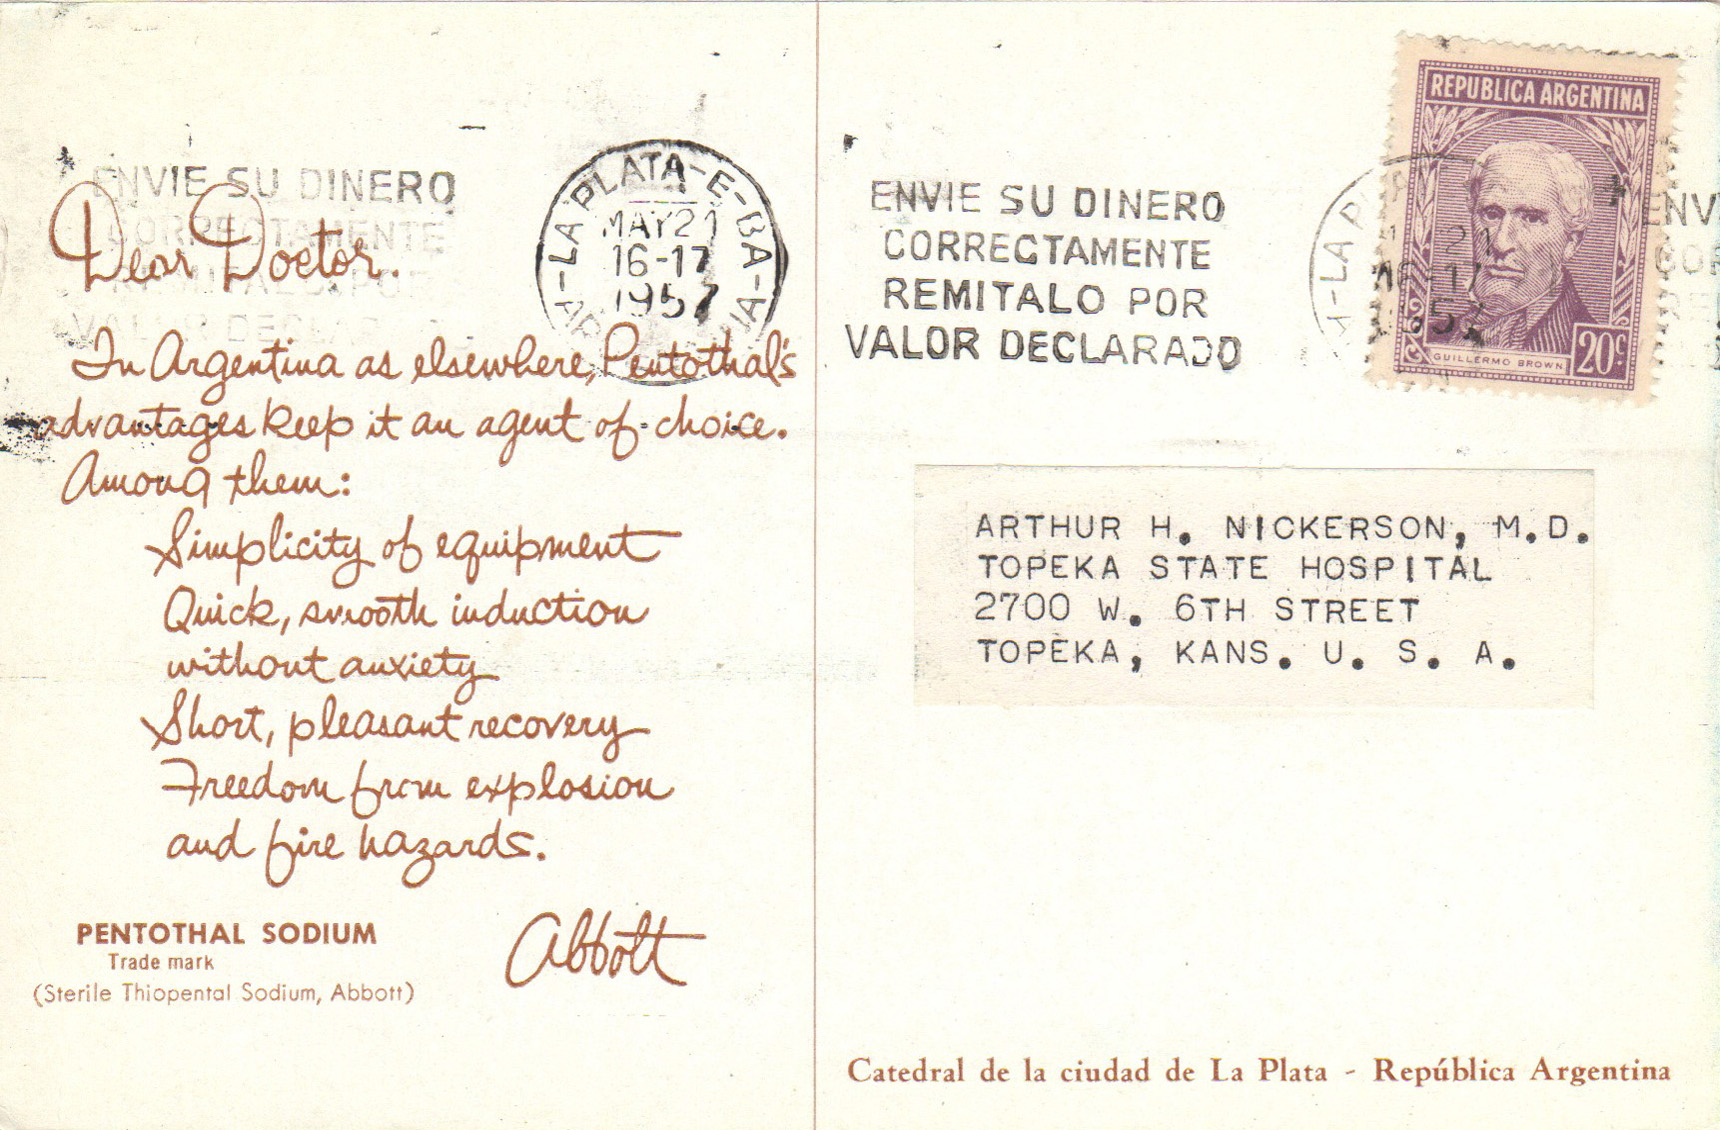 ENVIE SU DINERO
CORRECTAMENTE
REMITALO POR
VALOR DECLARADO
LA PLATA-E-BA
MAY 21
16-17
1957
Dear Doctor.
In Argentina as elsewhere, Pentothal's
advantages keep it an agent of choice.
Among them:
Simplicity of equipment
Quick, smooth induction
without anxiety
Short, pleasant recovery
Freedom from explosion
and fire hazards.
Abbott
PENTOTHAL SODIUM
Trade mark
(Sterile Thiopental Sodium, Abbott)
ENVIE SU DINERO
CORRECTAMENTE
REMITALO POR
VALOR DECLARADO
-LA P
21
16-17
57
REPUBLICA ARGENTINA
GUILLERMO BROWN
20c
ENV
COR
ARTHUR H. NICKERSON, M.D.
TOPEKA STATE HOSPITAL
2700 W. 6TH STREET
TOPEKA, KANS. U. S. A.
Catedral de la ciudad de La Plata - República Argentina